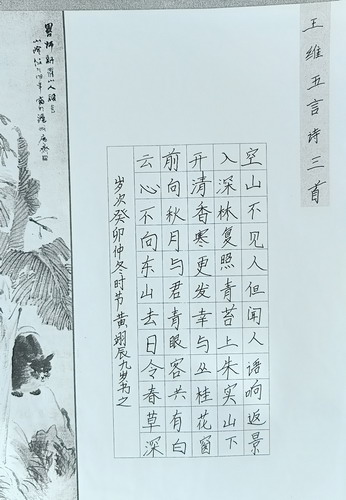 王维五言诗三首
空山不见人但闻人语响返景
入深林复照青苔上朱实山下
开清香寒更发幸与丛桂花窗
前向秋月与君青眼客共有白
云心不向东山去日令春草深
岁次癸卯仲冬时节黄翊辰九岁书之